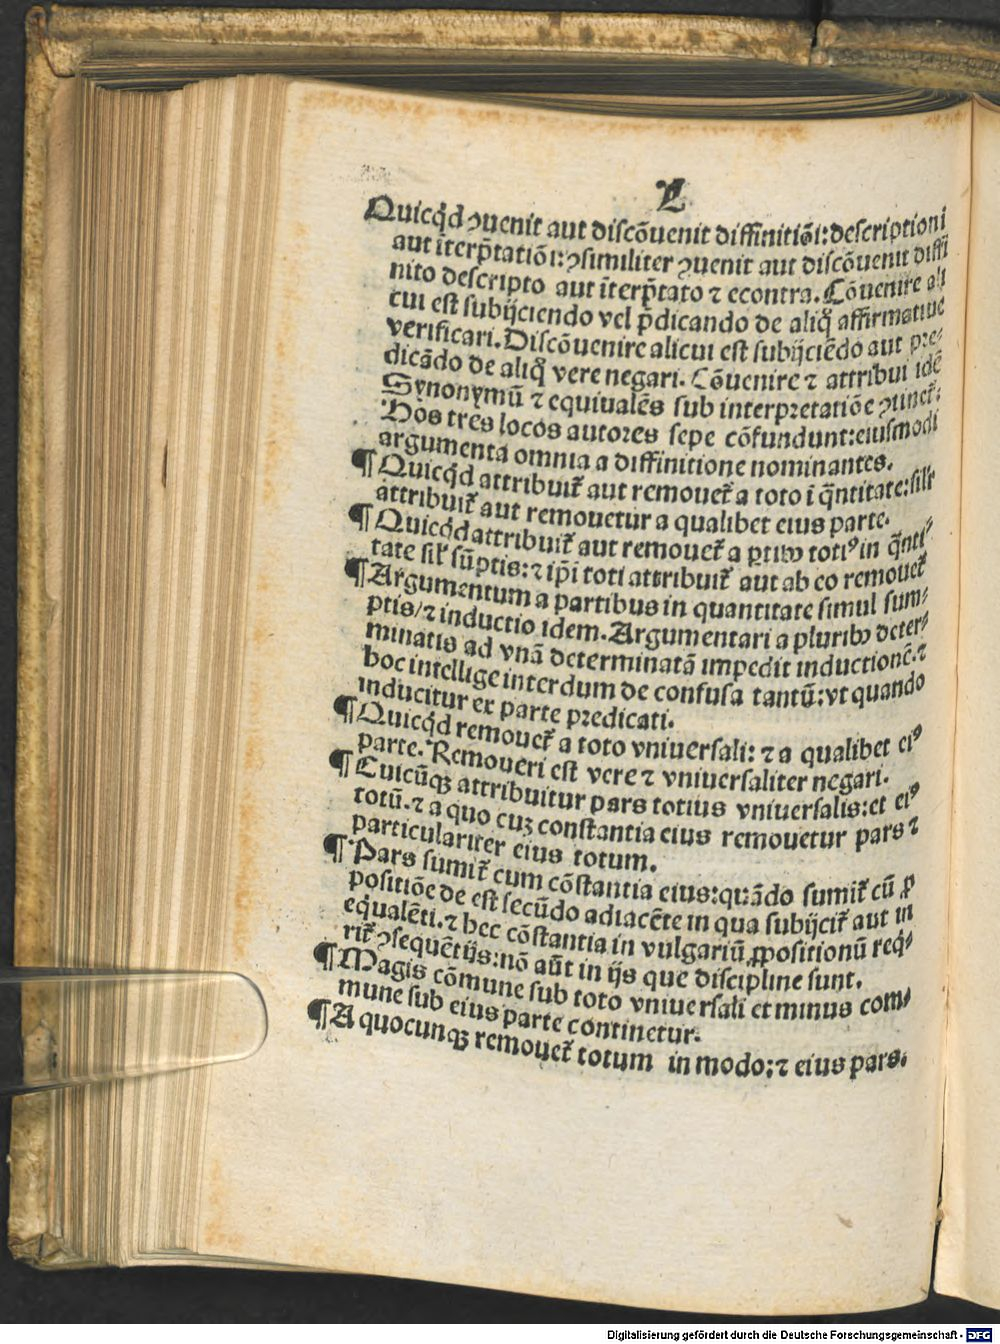 L
Quicq̃d ꝯuenit aut discõuenit diffinitiõi: descriptioni
aut ĩterp̃tatiõi: ꝯsimiliter ꝯuenit aut discõuenit diffi
nito descripto aut ĩterp̃tato ⁊ econtra. Cõuenire ali
cui est subijciendo vel p̃dicando de aliq̃ affirmatiue
verificari. Discõuenire alicui est subijciẽdo aut pre⸗
dicãdo de aliq̃ vere negari. Cõuenire ⁊ attribui idẽ
Synonymũ ⁊ equiualẽs sub interpretatiõe ꝯtinet᷑:
Hos tres locos autores sepe cõfundunt: eiusmodi
argumenta omnia a diffinitione nominantes.
¶ Quicq̃d attribuit᷑ aut remouet᷑ a toto ĩ q̃ntitate: sil᷑r
attribuit᷑ aut remouetur a qualibet eius parte.
¶ Quicq̃d attribuit᷑ aut remouet᷑ a ꝑtibꝰ totiꝰ in q̃nti⸗
tate sil᷑ sũptis: ⁊ ip̃i toti attribuit᷑ aut ab eo remouet᷑
¶ Argumentum a partibus in quantitate simul sum⸗
ptis/ ⁊ inductio idem. Argumentari a pluribꝰ deter⸗
minatis ad vnã determinatã impedit inductionẽ. ⁊
hoc intellige interdum de confusa tantũ: vt quando
inducitur ex parte predicati.
¶ Quicq̃d remouet᷑ a toto vniuersali: ⁊ a qualibet eiꝰ
parte. Remoueri est vere ⁊ vniuersaliter negari.
¶ Cuicũqꝫ attribuitur pars totius vniuersalis: et eiꝰ
totũ. ⁊ a quo cuꝫ constantia eius remouetur pars ⁊
particulariter eius totum.
¶ Pars sumit᷑ cum cõstantia eius: quãdo sumit᷑ cũ ꝓ
positiõe de est secũdo adiacẽte in qua subijcit᷑ aut in
equalẽti. ⁊ hec cõstantia in vulgariũ ꝓpositionũ req̃⸗
rit᷑ ꝯsequẽtijs: nõ aũt in ijs que discipline sunt.
¶ Magis cõmune sub toto vniuersali et minus com⸗
mune sub eius parte continetur.
¶ A quocunqꝫ remouet᷑ totum in modo: ⁊ eius pars.
Digitalisierung gefördert durch die Deutsche Forschungsgemeinschaft - DFG